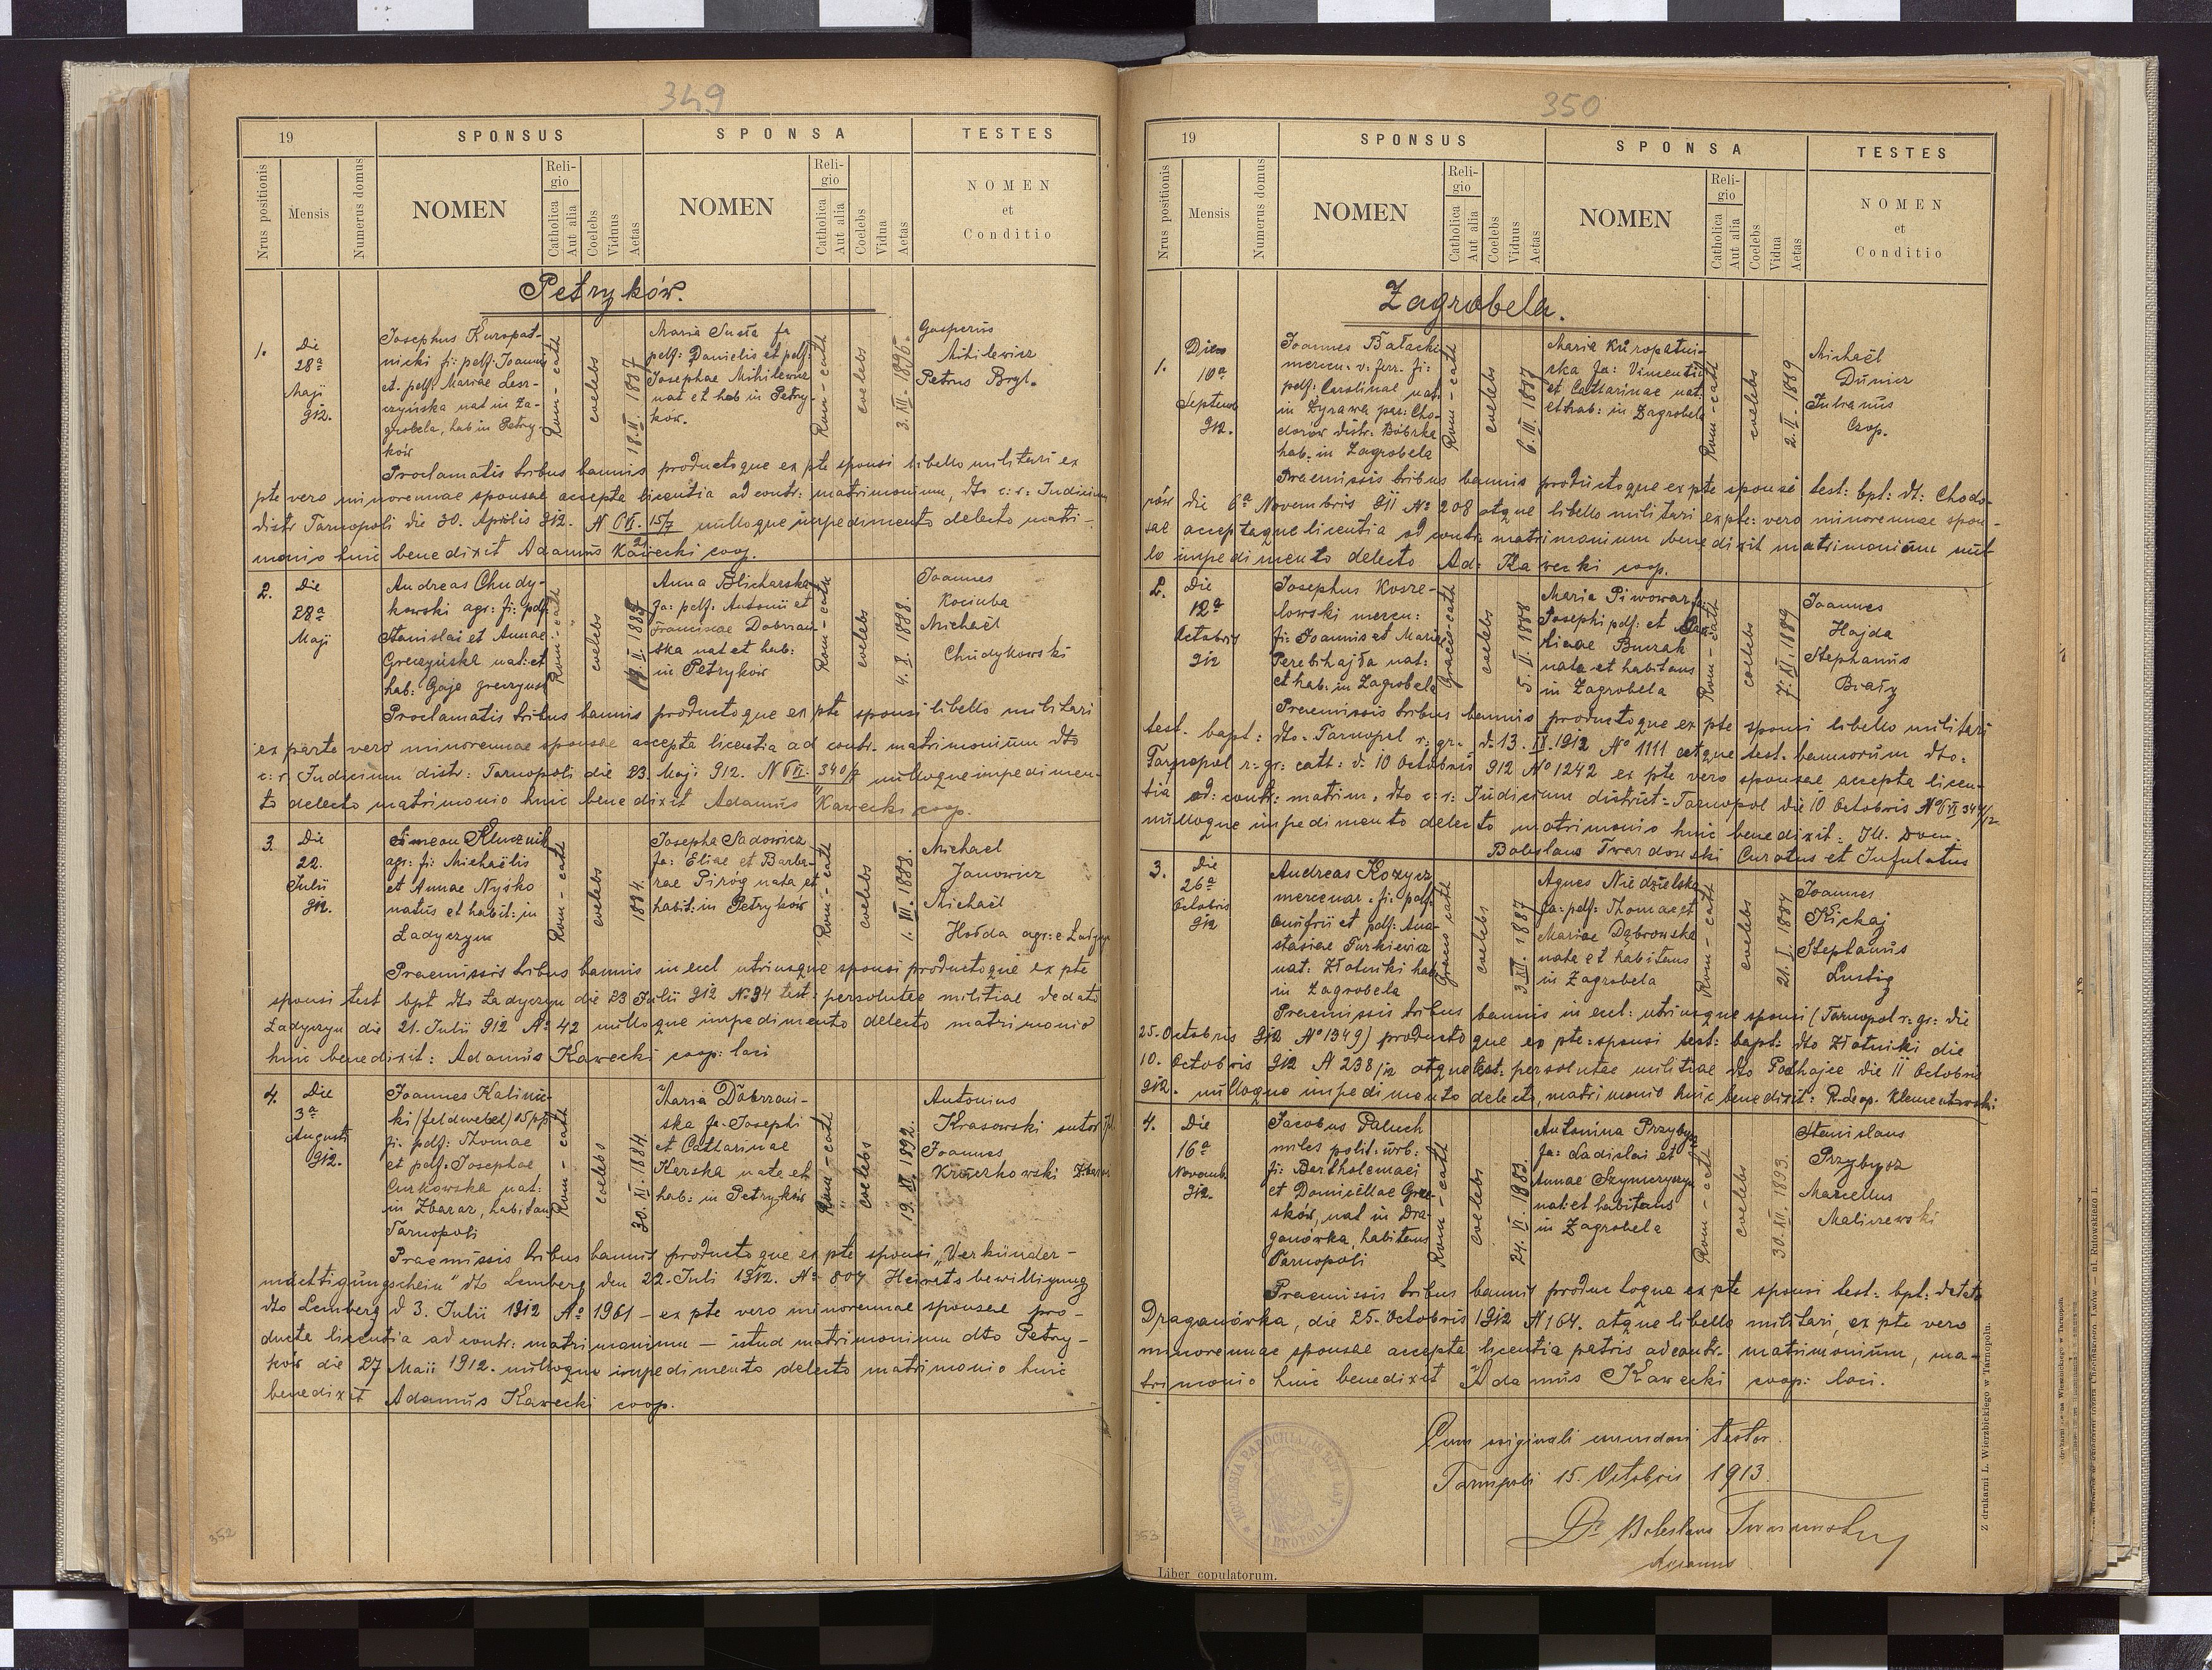 349
19
SPONSUS
SPONSA
TESTES
Nrus positionis
Mensis
Numerus domus
NOMEN
Religio
Catholica
Aut alia
Coelebs
Viduus
Aetas
NOMEN
Religio
Catholica
Aut alia
Coelebs
Vidua
Aetas
NOMEN
et
Conditio
Petryków.
1.
Die
28ª
Maji
912.
Josephus Kuropat-
nicki fi: pdf: Joannis
et pdf: Mariae Lesz-
czyńska nat in Za-
grobela, hab in Petry-
ków
Rom-cath
coelebs
18.II.1887
Maria Susła fa
pdf: Danielis et pdf:
Josephae Mihilewicz
nat et hab in Petry-
ków.
Rom-cath
coelebs
3.XII.1895.
Gasperus
Mihilewicz
Petrus Bryl.
Proclamatis tribus bannis productoque ex pte sponsi libello militari ex
pte vero minorennae sponsae accepta licentia ad contr: matrimonium, dto c: r: Judicium
distr Tarnopoli die 30. Aprilis 912. nulloque impedimento detecto matri-
monio huic benedixit Adamus Kawecki coop.
2.
Die
28ª
Maji
Andreas Chudy-
kowski agr: fi: pdf:
Stanislai et Annae
Greczyńska nat: et
hab: Gaje
Rom-cath
coelebs
Anna Blicharska
fa: pdf: Antonii et
Franciscae Dobrzań-
ska nat et hab:
in Petryków
Rom-cath
coelebs
4.X.1888.
Joannes
Kociuba
Michaël
Chudykowski
Proclamatis tribus bannis productoque ex pte sponsi libello militari
ex parte vero minorennae sponsae accepta licentia ad contr. matrimonium dto
c: r: Judicium distr: Tarnopoli die 23. Maji 912. nulloque impedimen-
to detecto matrimonio huic benedixit Adamus Kawecki coop.
3.
Die
22.
Julii
912.
Simeon Klucznik
agr: fi: Michaëlis
et Annae Nyśko
natus et habit: in
Ładyczyn
Rom-cath
coelebs
1884.
Josepha Sadowicz
fa: Eliae et Barba-
rae Piróg nata et
habit: in Petryków
Rom-cath
coelebs
1.III.1888.
Michael
Janowicz
Michaël
Hołda agr: e
Praemissis tribus bannis in eccl utriusque sponsi productoque ex pte
sponsi test bpt dto Ładyczyn die 23 Julii 912 № 94 test: persolutae militiae dedato
Ładyczyn die 21. Julii 912 № 42 nulloque impedimento detecto matrimonio
huic benedixit: Adamus Kawecki coop: loci
4.
Die
3ª
Augusti
912.
Joannes Kalinic-
ki (feldwebel)
fi: pdf: Thomae
et pdf: Josephae
Curkowska nat:
in Zbaraz, habitans
Tarnopoli
Rom-cath
coelebs
30.XI.1884.
Maria Dobrzań-
ska fa. Josephi
et Catharinae
Karska nata et
hab: in Petryków
Rom-cath
coelebs
19.XI.1892.
Antonius
Krasowski sutor
Joannes
Praemissis tribus bannis productoque ex pte sponsi „Verkünder-
mächtigungsschein" dto Lemberg den 22. Juli 1912. № 807 Heiratsbewilligung
dto Lemberg d 3. Julii 1912 № 1961 – ex pte vero minorennae sponsae pro-
ducta licentia ad contr: matrimonium – istud matrimonium dto Petry-
ków die 27 Maii 1912. nulloque impedimento detecto matrimonio huic
benedixit Adamus Kawecki coop.
352
350
19
SPONSUS
SPONSA
TESTES
Nrus positionis
Mensis
Numerus domus
NOMEN
Religio
Catholica
Aut alia
Coelebs
Viduus
Aetas
NOMEN
Religio
Catholica
Aut alia
Coelebs
Vidua
Aetas
NOMEN
et
Conditio
Zagrobela.
1.
Dies
10ª
Septemb
912.
Joannes Bałacki
mercen: v: ferr: fi:
pdf: Carolinae nat:
in Żyrawa par: Cho-
dorów distr: Bóbrka
hab: in Zagrobela
Rom-cath
coelebs
6.III.1887
Maria Kuropatni-
ska fa: Vincentii
et Catharinae nat:
et hab: in Zagrobela
Rom-cath
coelebs
2.II.1889
Michaël
Dunicz
Julianus
Czop.
Praemissis tribus bannis productoque ex pte sponsi test: bpt: dt: Chodo-
rów die 6ª Novembris 911 № 208 atque libello militari ex pte: vero minorennae spon-
sae acceptaque licentia ad contr: matrimonium benedixit matrimonium nul-
lo impedimento detecto Ad: Kawecki coop.
2.
Die
12ª
Octobris
912
Josephus Kosze-
lowski mercen:
fi: Joannis et Maria
Perebihajła nat:
et hab: in Zagrobela
Graeco-cath
coelebs
5.II.1888
Maria Piwowar fa
Josephi pdf: et
nata et habitans
in Zagrobela
Rom-cath
coelebs
7.XI.1889
Joannes
Hajda
Stephanus
Biały
Praemissis tribus bannis productoque ex pte sponsi libello militari
test. bapt: dto. Tarnopol r: gr. d. 13. IX. 1912 № 1111 atque test. bannorum dto.
Tarnopol r: gr: cath: d: 10 Octobris 912 № 1242 ex pte vero sponsae accepta licen-
tia ad: contr: matrim. dto c: r: Judicium district: Tarnopol die 10 Octobris
nulloque impedimento detecto matrimonio huic benedixit: Ill. Dom.
Boleslaus Twardowski Curatus et Infulatus
3.
Die
26ª
Octobris
912
Andreas Kozycz
mercenar: fi: pdf:
Onufrii et pdf: Ana-
stasiae Turkiewicz
nat: Złotniki hab:
in Zagrobela
Graeco cath
coelebs
3.XII.1887
Agnes Niedzielska
fa: pdf: Thomae et
Mariae Dąbrowska
nata et habitans
in Zagrobela
Rom-cath
coelebs
21.I.1884
Joannes
Kickaj
Stephanus
Lustig
Praemissis tribus bannis in eccl: utriusque sponsi (Tarnopol r: gr: die
25. Octobris 912 № 1349) productoque ex pte: sponsi test: bapt: dto Złotniki die
10. Octobris 912 № 238/12 atque test: persolutae militiae dto Podhajce die 11 Octobris
912. nulloque impedimento detecto, matrimonio huic benedixit:
4.
Die
16ª
Novemb.
912.
Jacobus Paluch
miles polit: urb:
fi: Bartholomaei
et Domicellae Grze-
sków, nat in Dra-
ganówka, habitans
Tarnopoli
Rom-cath
coelebs
24.VI.1883.
Antonina Przybysz
fa: Ladislai et
Annae Szymczyszyn
nat: et habitans
in Zagrobela
Rom-cath
coelebs
30.XII.1893.
Stanislaus
Przybysz
Marcellus
Maliszewski
Praemissis tribus bannis productoque ex pte sponsi test: bpt: datato
Draganówka, die 25. Octobris 1912 № 164. atque libello militari, ex pte vero
minorennae sponsae accepta licentia patris ad contr. matrimonium, ma-
trimonio huic benedixit Adamus Kawecki coop: loci.
Cum originali concordari testor.
Tarnopoli 15. Octobris 1913.
Dr Boleslaus Twardowski
ECCLESIA PAROCHIALIS RIT. LAT. TARNOPOLI
353
Liber copulatorum.
Z drukarni L. Wierzbickiego w Tarnopolu.